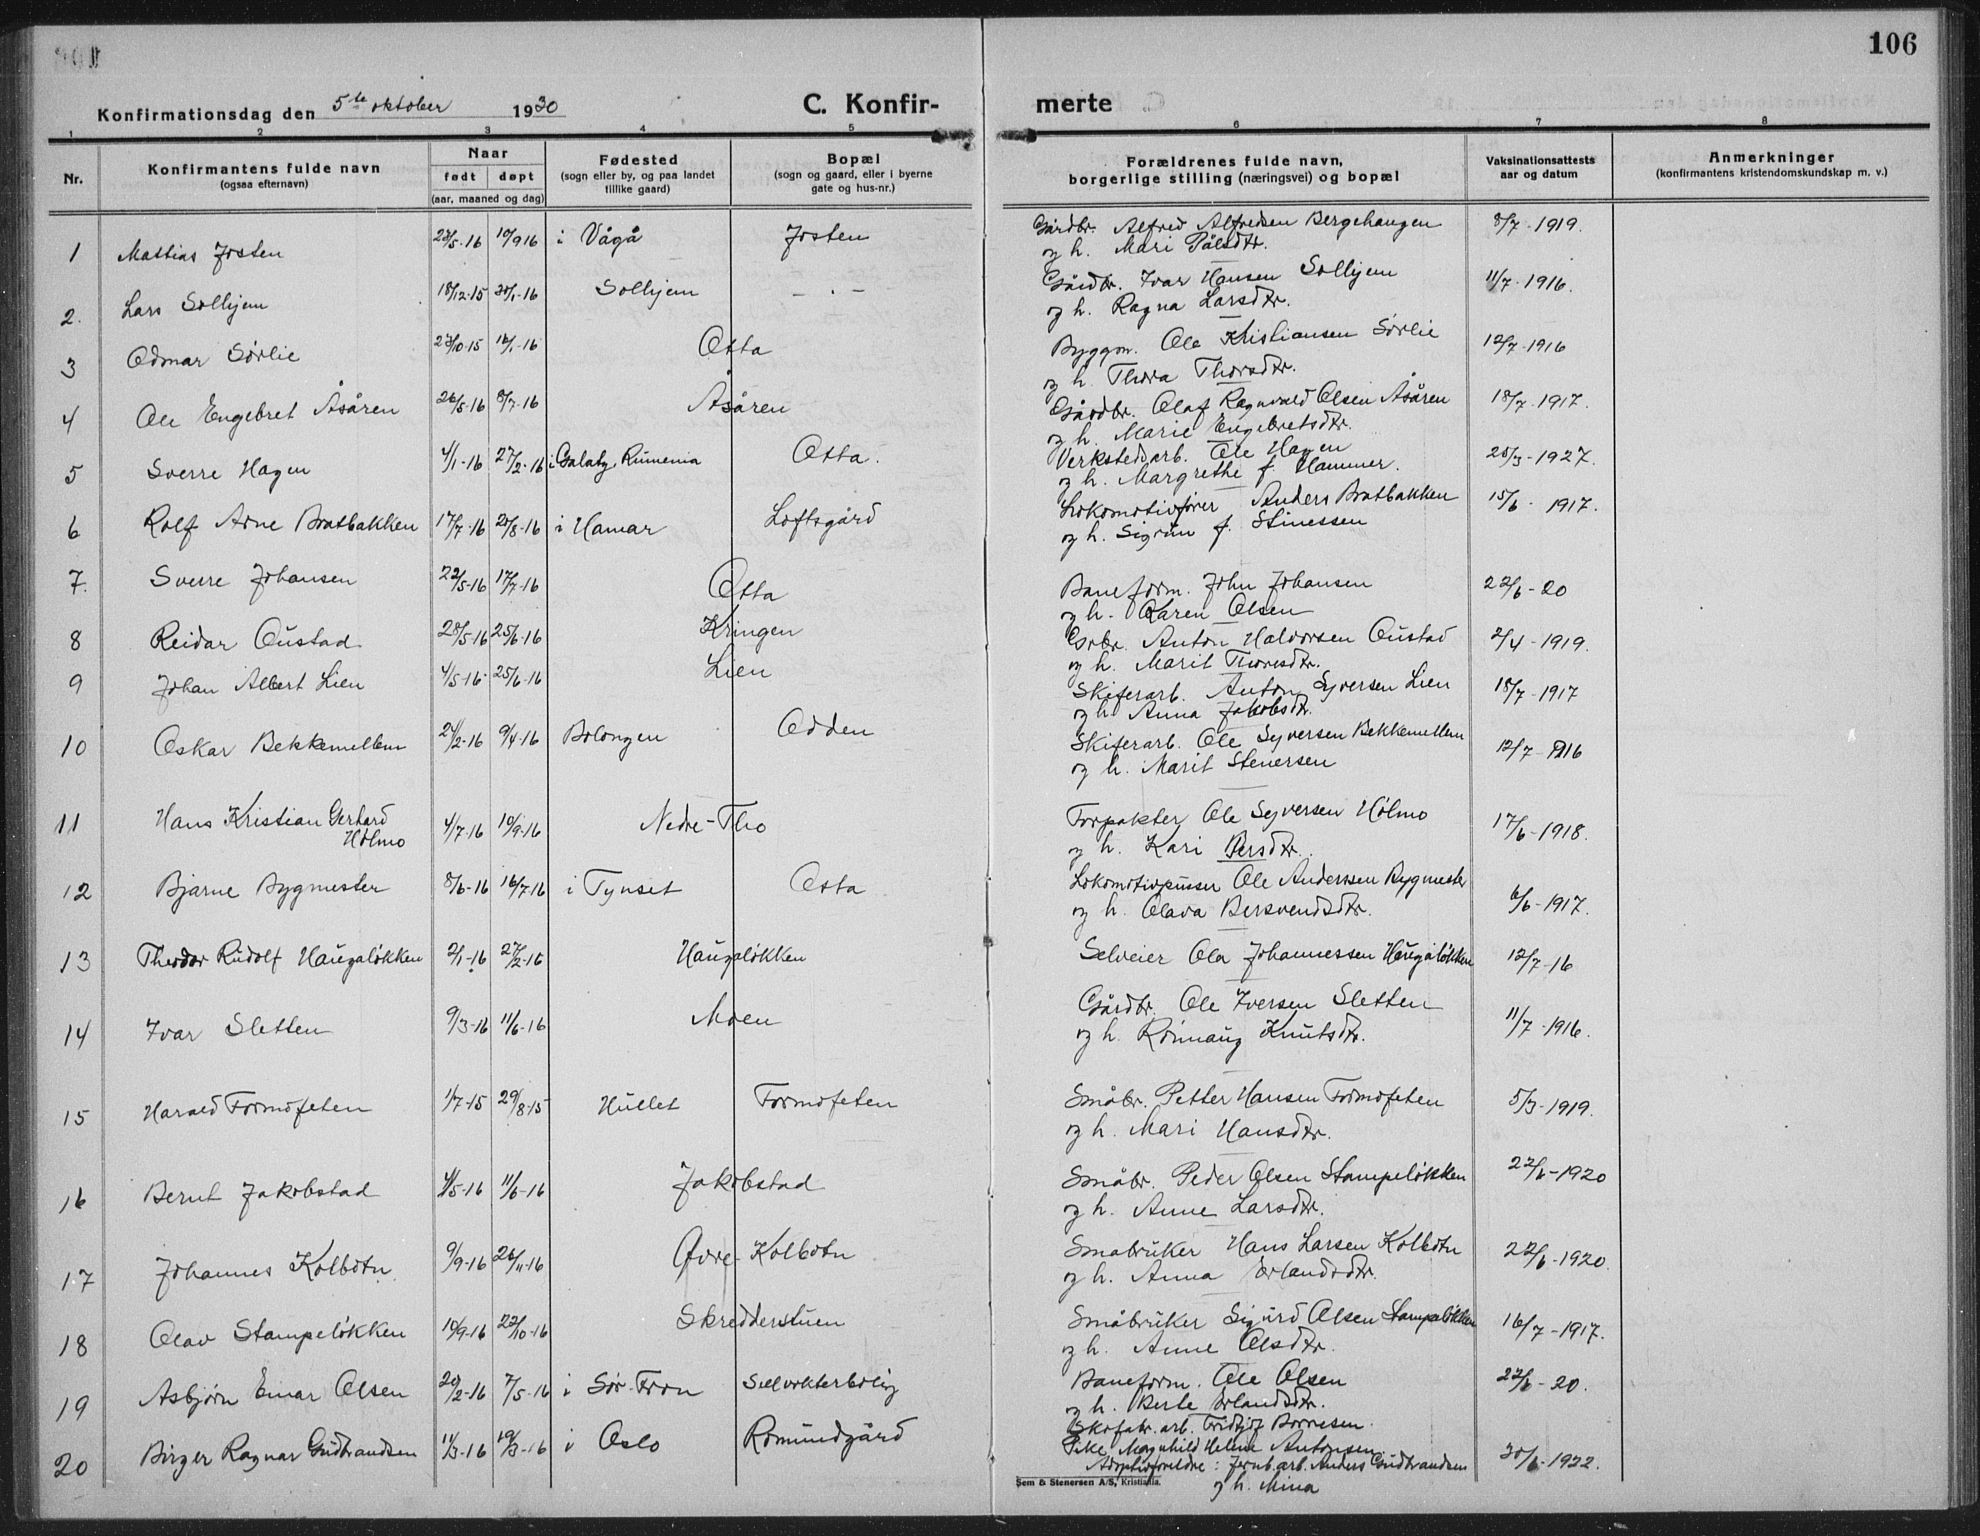 106
Konfirmationsdag den 5te oktober 1930
C. Konfirmerte
1 2 3 4 5 6 7 8
Nr.
Konfirmantens fulde navn
(ogsaa efternavn)
Naar
født døpt
(aar, maaned og dag)
Fødested
(sogn eller by, og paa landet
tillike gaard)
Bopæl
(sogn og gaard, eller i byerne
gate og hus-nr.)
Forældrenes fulde navn,
borgerlige stilling (næringsvei) og bopæl
Vaksinationsattests
aar og datum
Anmerkninger
(konfirmantens kristendomskundskap m. v.)
1 Mattias Josten 23/5-16 10/9 16 i Vågå Josten Gårdbr. Alfred Alfredsen Bergehaugen 8/7-1919.
og h. Mari Pålsdtr.
2. Lars Solhjem 18/12-15 30/1-16 Solhjem — . — Gårdbr. Ivar Hansen Solhjem 11/7-1916.
og h. Ragna Larsdtr.
3 Odmar Sørlie 27/10-15 16/1-16 Otta Byggm. Ole Kristiansen Sørlie 12/7-1916
og h. Thora Thorsdtr.
4 Ole Engebret Åsåren 26/5-16 9/7-16 Åsåren Gårdbr. Olaf Ragnvald Olsen Åsåren 18/7-1917.
og h. Marie Engebretsdtr.
5 Sverre Hagen 4/1-16 27/2-16 i Galatz, Rumenia Otta. Verkstedsarb. Ole Hagen 28/3-1927.
og h. Margrethe f. Hammer.
6 Rolf Arne Bratbakken 17/7-16 20/8-16 i Hamar Loftsgård Lokomotivfører Anders Bratbakken 15/6-1917.
og h. Sigrun f. Stinessen
7. Sverre Johansen 22/5-16 17/7-16 Otta Baneform. John Johansen 22/6-20
og h. Karen Olsen
8 Reidar Oustad 28/5-16 25/6-16 Kringen Grbr. Anton Haldorsen Oustad 2/4-1919.
og h. Marit Thoresdtr.
9 Johan Albert Lien 4/5-16 25/6-16 Lien Skiferarb. Anton Syversen Lien 18/7-1917
og h Anna Jakobsdtr.
10 Oskar Bekkemellem 24/2-16 9/4-16 Bolongen Odden Skiferarb. Ole Syversen Bekkemellem 12/7-16
og h. Marit Stenersen
11 Hans Kristian Gerhard 4/7-16 10/9-16 Nedre-Tho Forpakter Ole Syversen Holmo 17/6-1918.
Holmo og h. Kari Persdtr.
12 Bjarne Bygmester 8/6-16 16/7-16 i Tynset Otta Lokomotivpusser Ole Anderssen Bygmester 6/6-1917.
og h. Olava Bersvendsdtr.
13 Theodor Rudolf Haugaløkken 2/1-16 27/2-16 Haugaløkken Selveier Ola Johannessen Haugaløkken 12/7-16
14 Ivar Sletten 9/3-16 11/6-16 Moen Gårdbr. Ole Iversen Sletten 11/7-1916.
og h. Rønnaug Knutsdtr.
15 Harald Formofeten 1/7-15 29/8-15 Hullet Formofeten Småbr. Petter Hansen Formofeten 5/3-1919.
og h. Mari Hansdtr.
16 Bernt Jakobstad 4/5-16 11/6-16 Jakobstad Småbr. Peder Olsen Stampeløkken 22/6-1920
og h. Anne Larsdtr.
17 Johannes Kolbotn 9/9-16 26/11-16 Øvre-Kolbotn Småbruker Hans Larsen Kolbotn 22/6-1920.
og h. Anna Erlandsdtr.
18 Olav Stampeløkken 10/9-16 22/10-16 Skredderstuen Småbruker Sigurd Olsen Stampeløkken 16/7-1917.
og h. Anne Olsdtr.
19 Asbjørn Einar Olsen 20/2-16 7/5-16 i Sør-Fron Selvokterbolig Baneform. Ole Olsen 22/6-20.
og h. Berte Erlandsdtr.
20 Birger Ragnar Gudbrandsen 11/3-16 19/3-16 i Oslo Romundgård Skofabr.arb. Fridtjof Bornesen 30/6-1922.
Pike Magnhild Helene Antonsen
Adoptivforeldre: Jernb.arb. Anders Gudbrandsen
og h. Mina
Sem & Stenersen A/S, Kristiania.